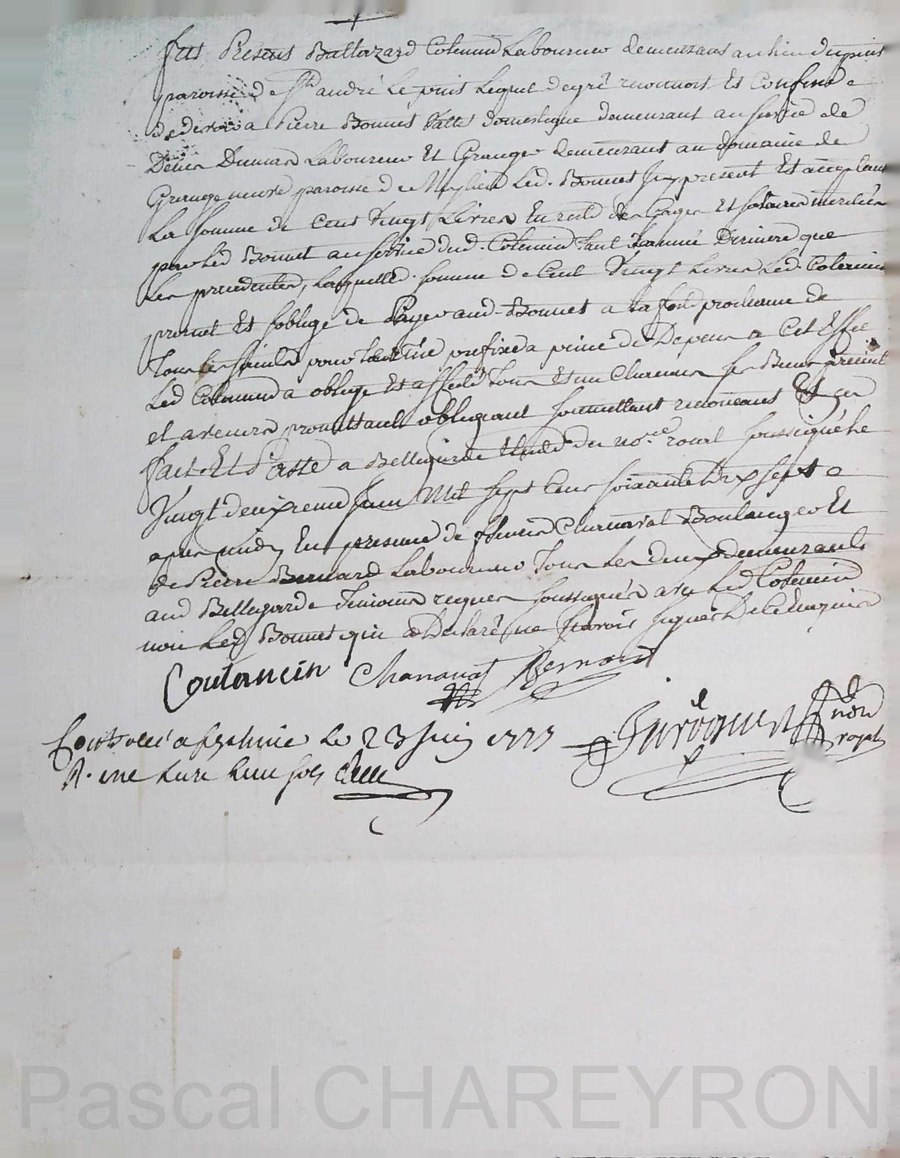 fut Present Baltazard Cotencin Laboureur demeurant au lieu du puis
paroisse de St andré le puis Lequel de gré reconnoit Et Confesse
devoir a Pierre Bonnet Vallet domestique demeurant au service de
Denis Dumas Laboureur Et Granger demeurant au domaine de
Grange neuve paroisse de Led. Bonnet icy present Et acceptant
La somme de Cent Vingt Livres En reste de Gages Et salaires merités
par Led Bonnet au service dud. Cotencin tant Lannée Derniere que
Les precedentes, Laquelle somme de Cent Vingt Livres Led. Cotencin
promet Et soblige de Payer aud. Bonnet a la fete prochaine de
Tous les saints pour tout delai prefixe a peine de Depens a Cet Effet
Led Cotencin a obligé Et affecté Tous Et un Chacuns ses Biens presents
et avenirs promettant obligeant soumettant renonceant Et ca
fait Et Passé a Bellegarde Etude du nore royal soussigné Le
Vingt deuxieme Juin Mil sept Cens soixante Dix sept
apres midy En presence de Chananat Boulanger Et
de Pierre Bernard Laboureur Tous Les deux demeurants
aud Bellegarde Temoins requis soussignés avec Led Cotencin
non Led Bonnet qui a Declaré ne scavoir signer De ce Enquis
Coutancin Chananat Bernard
nore
royal
Controllé a le 23 Juin 1777
R. une livre huit sols
Pascal CHAREYRON